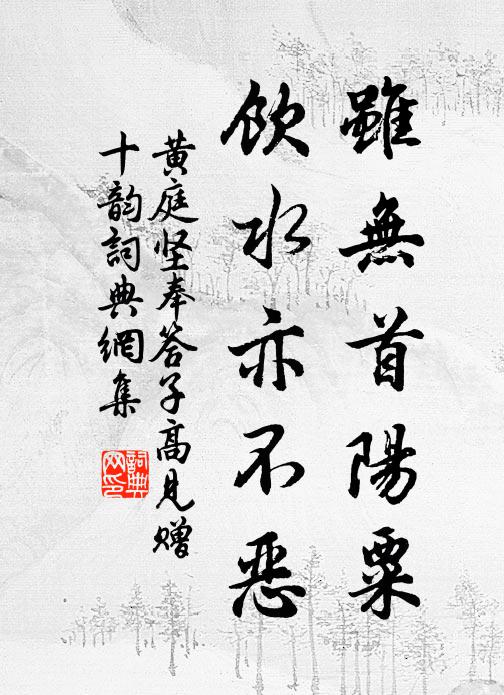 雖無首陽粟
飲水亦不惡
黄庭坚奉答子高見贈
十韵詞典網集
詞典网印